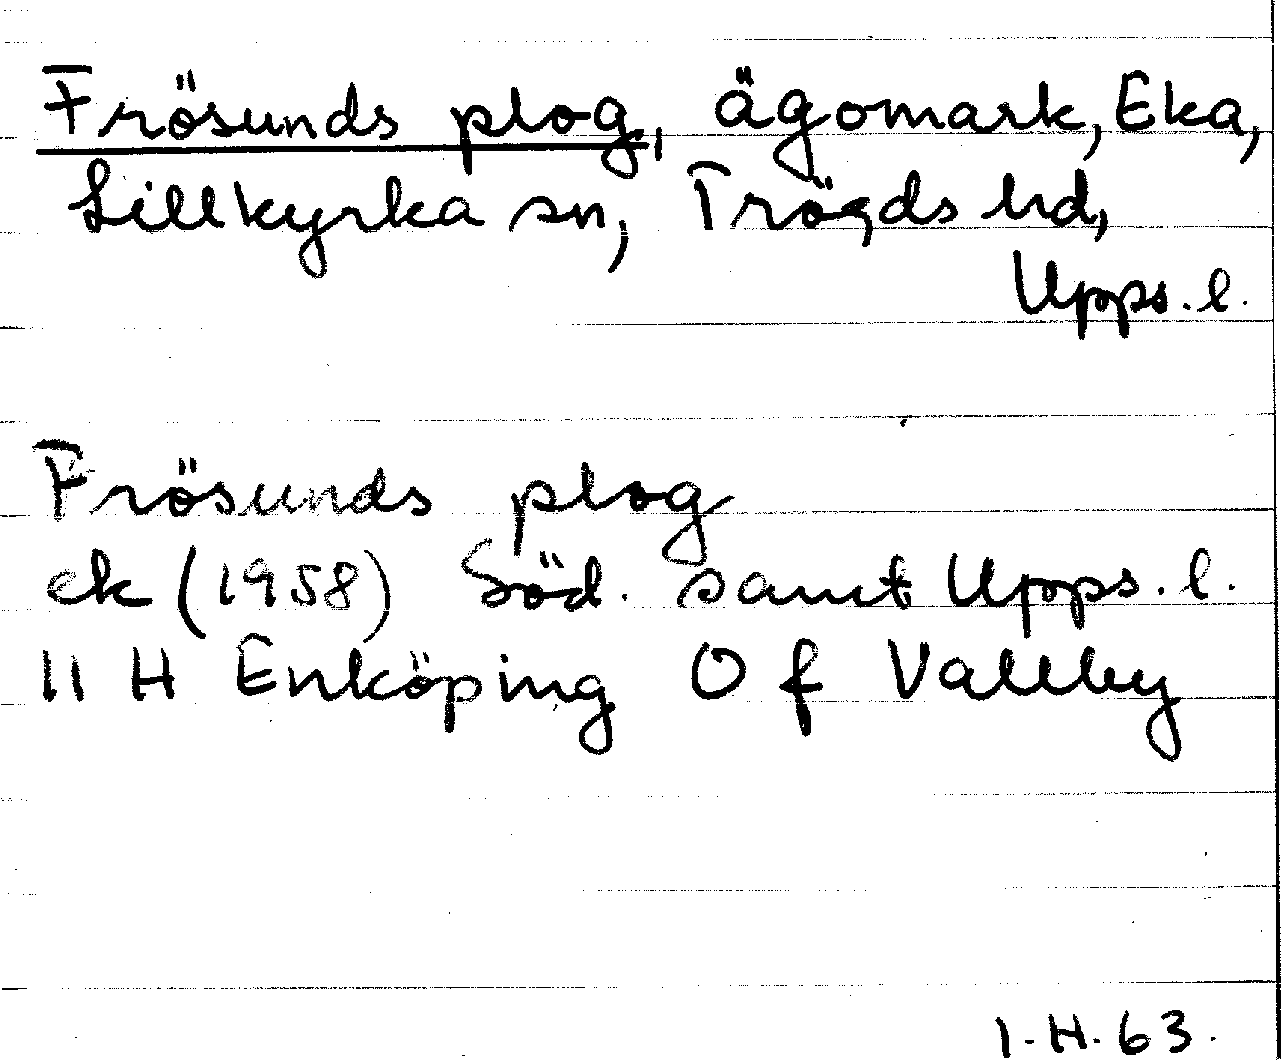 Frösunds plog, ägomark, Eka,
Lillkyrka sn, Trögds hd,
Upps. l.
Frösunds plog
ek (1958) Söd. samt Upps. l.
11 H Enköping O f Vallby
I. H. 63.